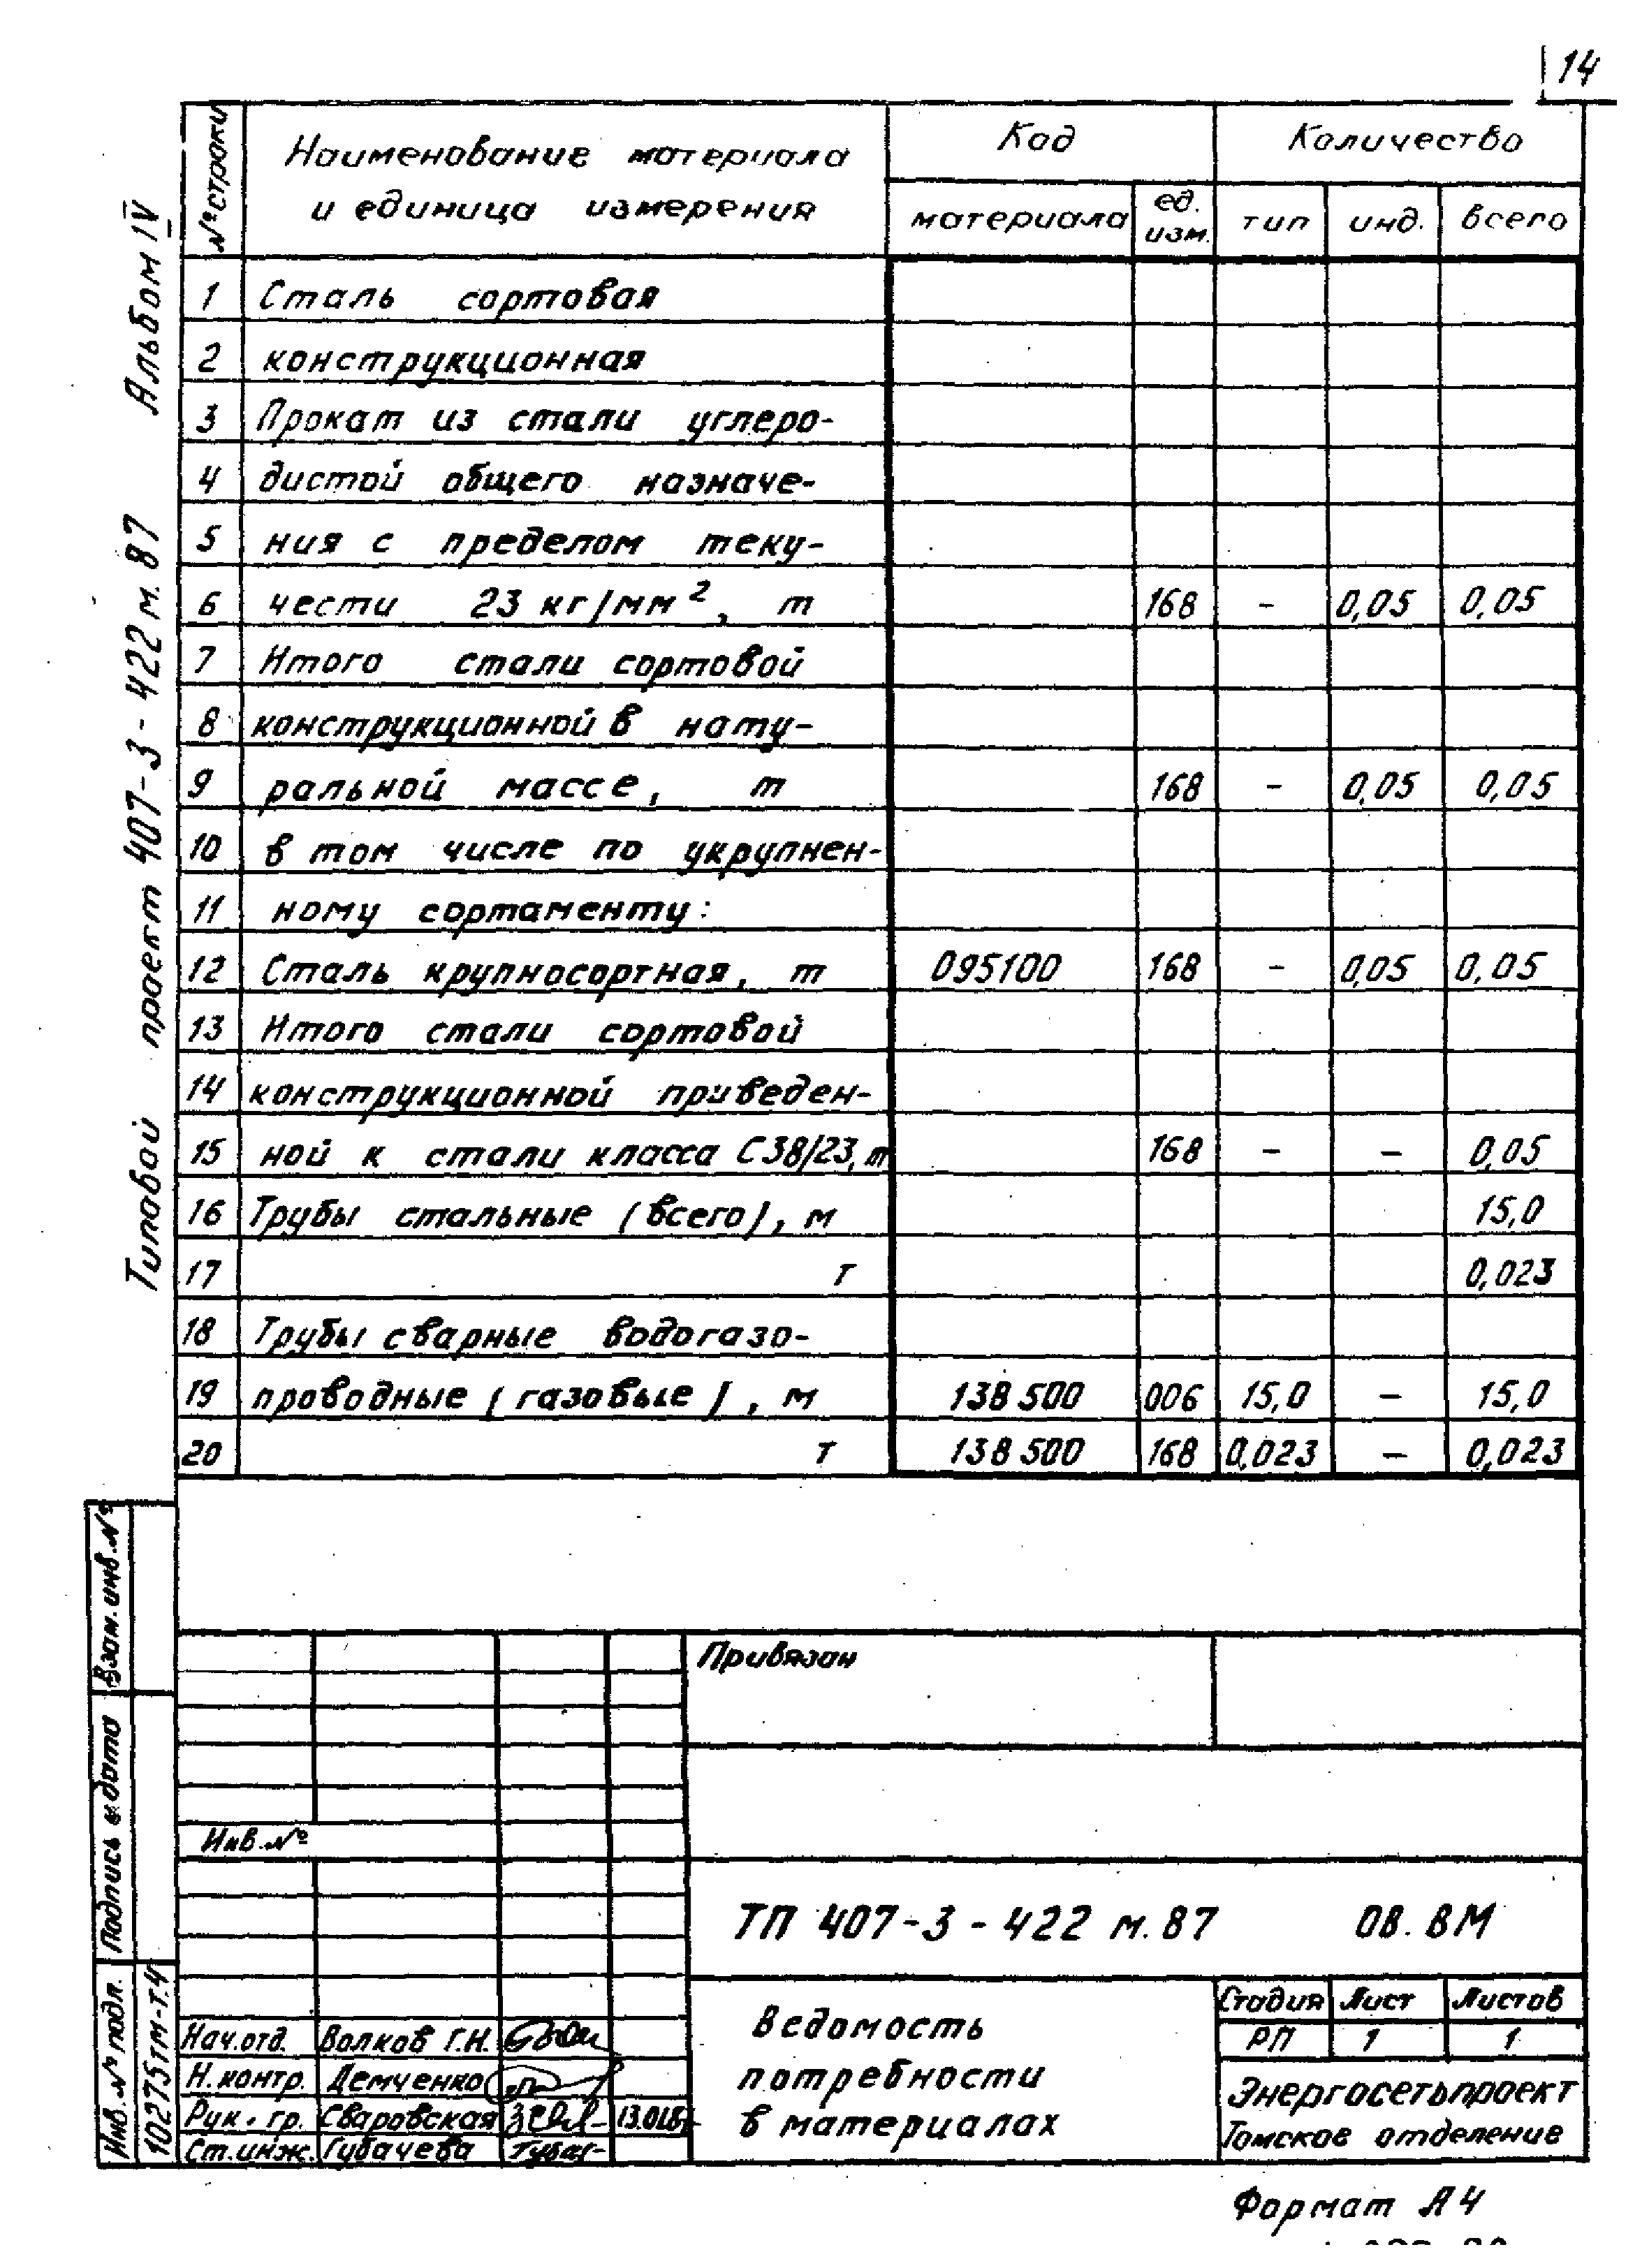 14
№ строки
Наименование материала
и единица измерения
Код
Количество
материала
ед. изм.
тип
инд.
всего
1 Сталь сортовая
2 конструкционная
3 Прокат из стали углеро-
4 дистой общего назначе-
5 ния с пределом теку-
6 чести 23 кг/мм², т 168 - 0,05 0,05
7 Итого стали сортовой
8 конструкционной в нату-
9 ральной массе, т 168 - 0,05 0,05
10 в том числе по укрупнен-
11 ному сортаменту:
12 Сталь крупносортная, т 095100 168 - 0,05 0,05
13 Итого стали сортовой
14 конструкционной приведен-
15 ной к стали класса С38/23, т 168 - - 0,05
16 Трубы стальные (всего), м 15,0
17 т 0,023
18 Трубы сварные водогазо-
19 проводные (газовые), м 138 500 006 15,0 - 15,0
20 т 138 500 168 0,023 - 0,023
Типовой проект 407-3-422 м.87 Альбом IV
Взам. инв. №
Подпись и дата
Инв. № подл.
10275тм-т.4
Привязан
Инв. №
ТП 407-3-422 м.87 ОВ.ВМ
Нач. отд. Волков Г.Н.
Н. контр. Демченко
Рук. гр. Сваровская
Ст. инж. Губачева
Ведомость
потребности
в материалах
Стадия Лист Листов
РП 1 1
Энергосетьпроект
Томское отделение
Формат А4